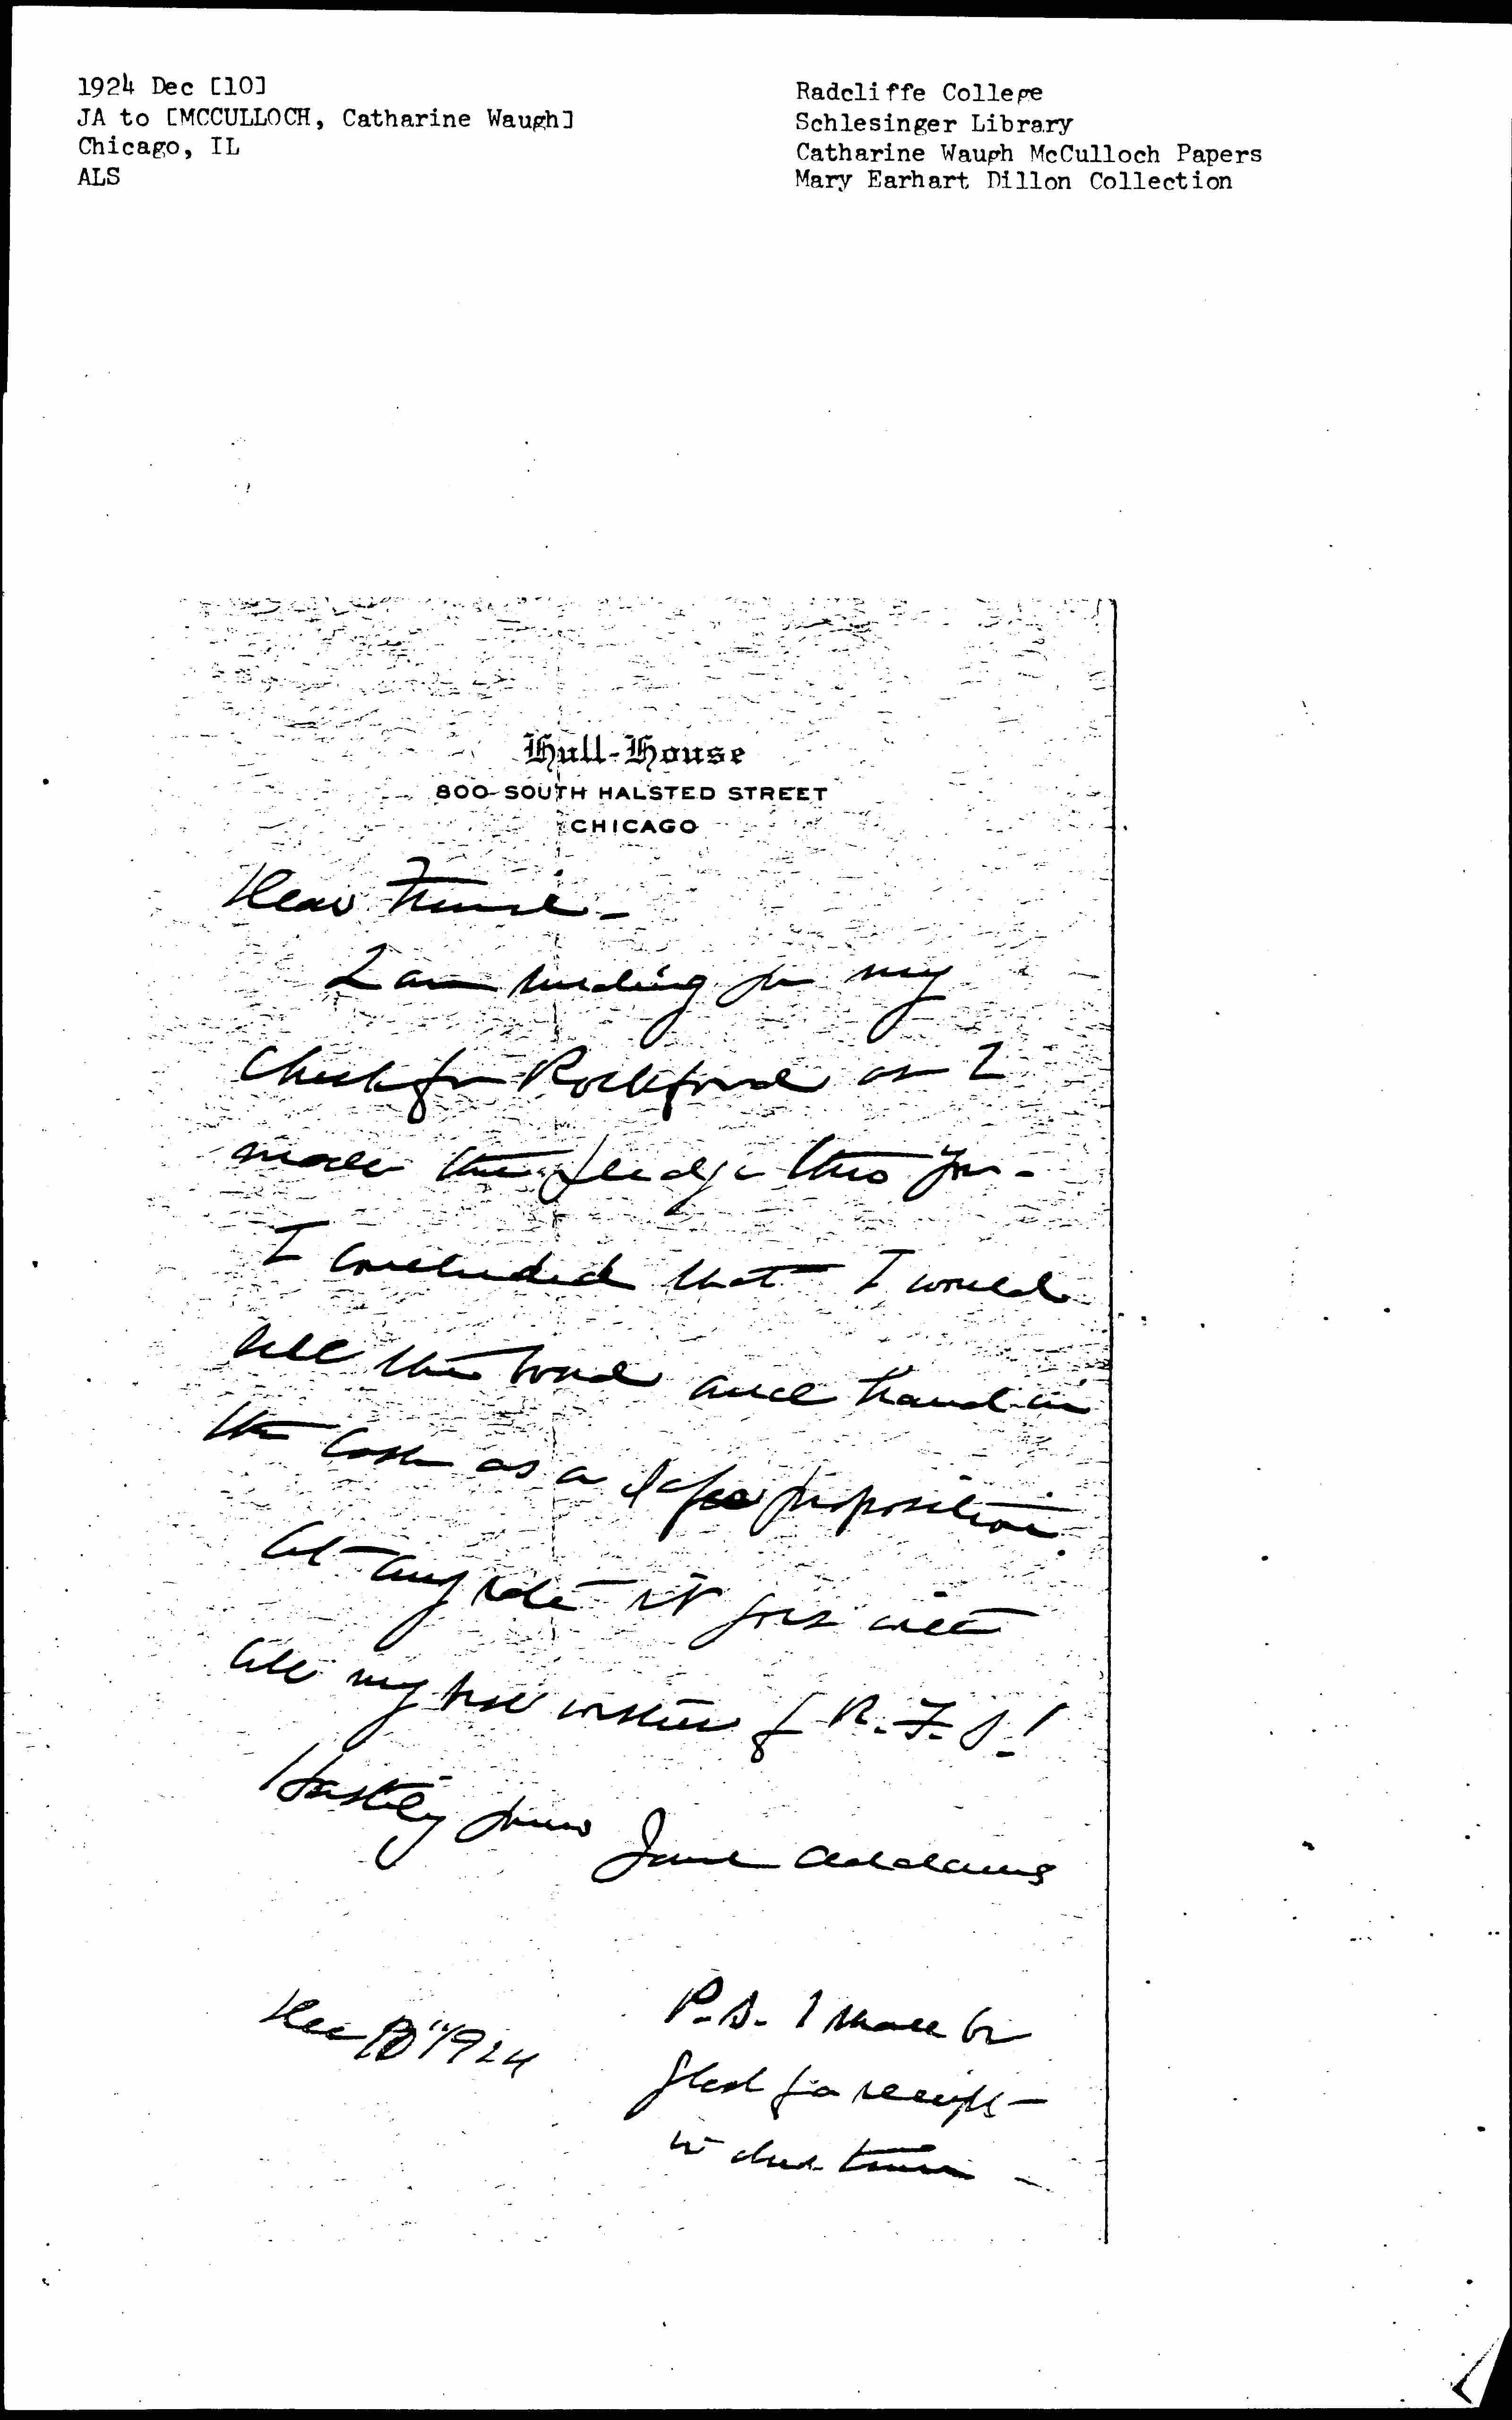 1924 Dec [10]
JA to [MCCULLOCH, Catharine Waugh]
Chicago, IL
ALS
Radcliffe College
Schlesinger Library
Catharine Waugh McCulloch Papers
Mary Earhart Dillon Collection
Hull-House
800 SOUTH HALSTED STREET
CHICAGO
Dear Friend –
I am sending you my
Check for Rockford as I
made the pledge thro you –
I concluded that I would
sell the bond and hand in
the Cash as a safe proposition.
At any rate it goes with
all my best wishes for R.F.S.!
Hastily yours Jane Addams
Dec 10" 1924
P.S. I shall be
glad for a receipt –
in due time –